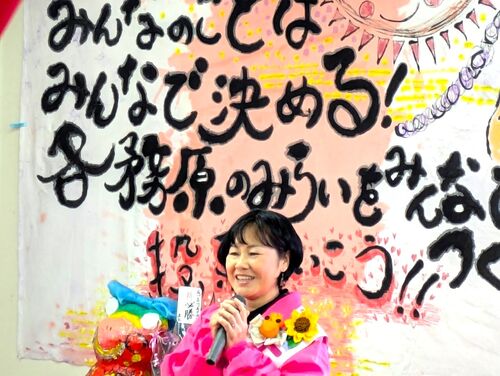 みんなのことは
みんなで決める!
各務原のみらいをみんな
いこう つく!!
必勝